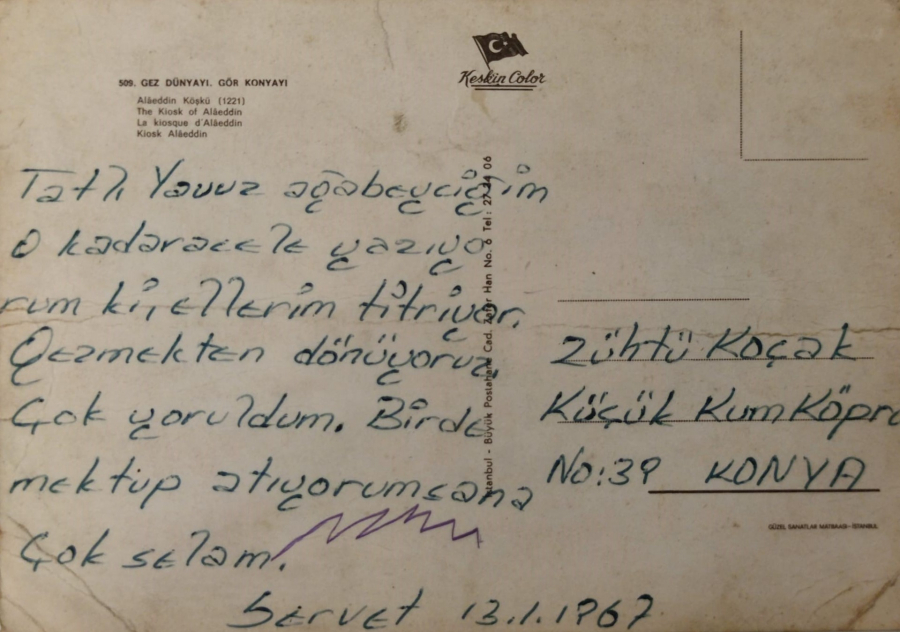 509. GEZ DÜNYAYI. GÖR KONYAYI
Alâeddin Köşkü (1221)
The Kiosk of Alâeddin
La kiosque d'Alâeddin
Kiosk Alâeddin
Keskin Color
Tatlı Yavuz ağabeyciğim
O kadaracele yazıyo
rum ki, ellerim titriyor.
Gezmekten dönüyoruz.
Çok yoruldum. Birde
mektup atıyorumsana
Çok selam.
Servet 13.1.1967
İstanbul - Büyük Postahane Cad. Zafer Han No. 6 Tel: 27 44 06
Zühtü Koçak
Küçük Kum Köprü
No: 39 KONYA
GÜZEL SANATLAR MATBAASI-İSTANBUL